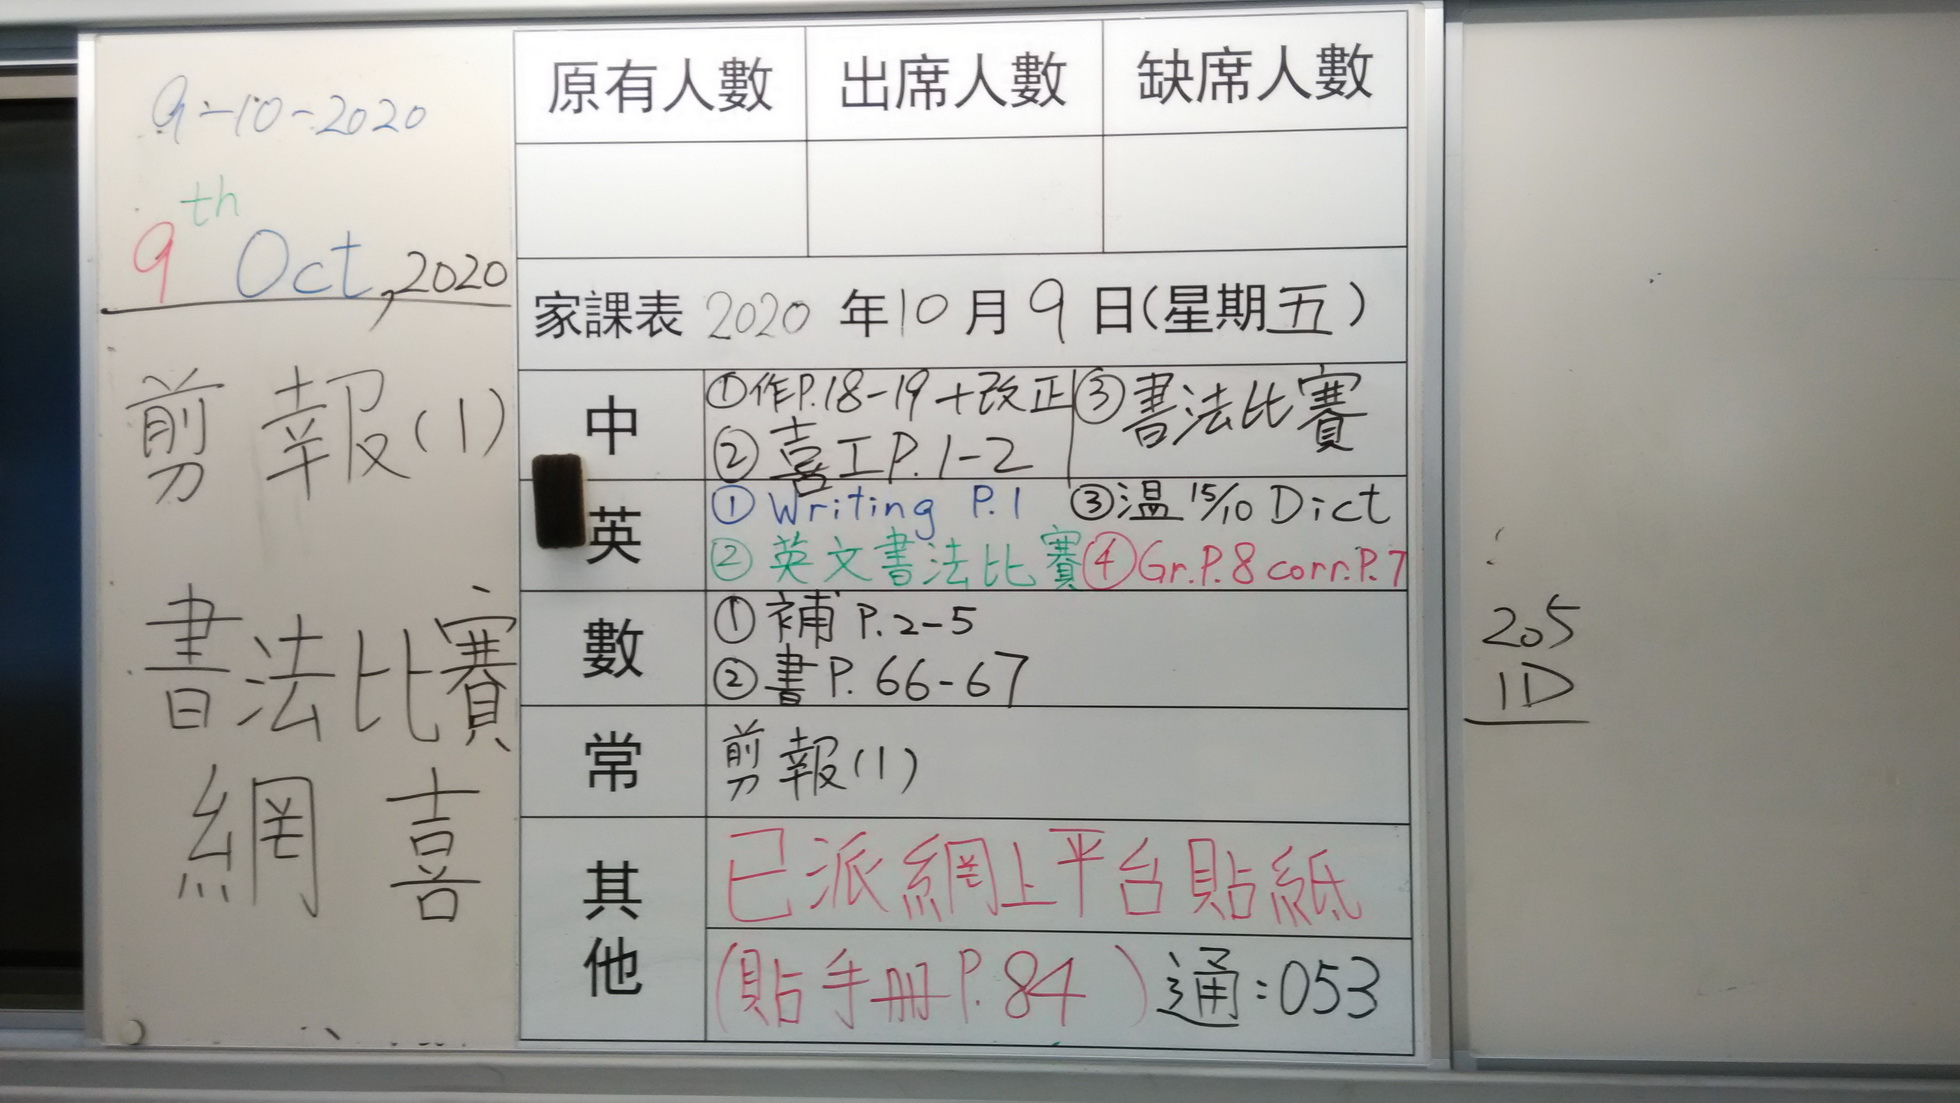 9-10-2020
9th Oct, 2020
剪報(1)
書法比賽
網 喜
原有人數 出席人數 缺席人數
家課表 2020 年 10 月 9 日(星期五)
中
①作P.18-19+改正 ③書法比賽
②喜工P.1-2
英
①Writing P.1 ③温 15/10 Dict
②英文書法比賽 ④Gr.P.8 corr.P.7
數
①補 P.2-5
②書 P.66-67
常
剪報(1)
其他
已派網上平台貼紙
(貼手冊P.84) 通:053
205
1D